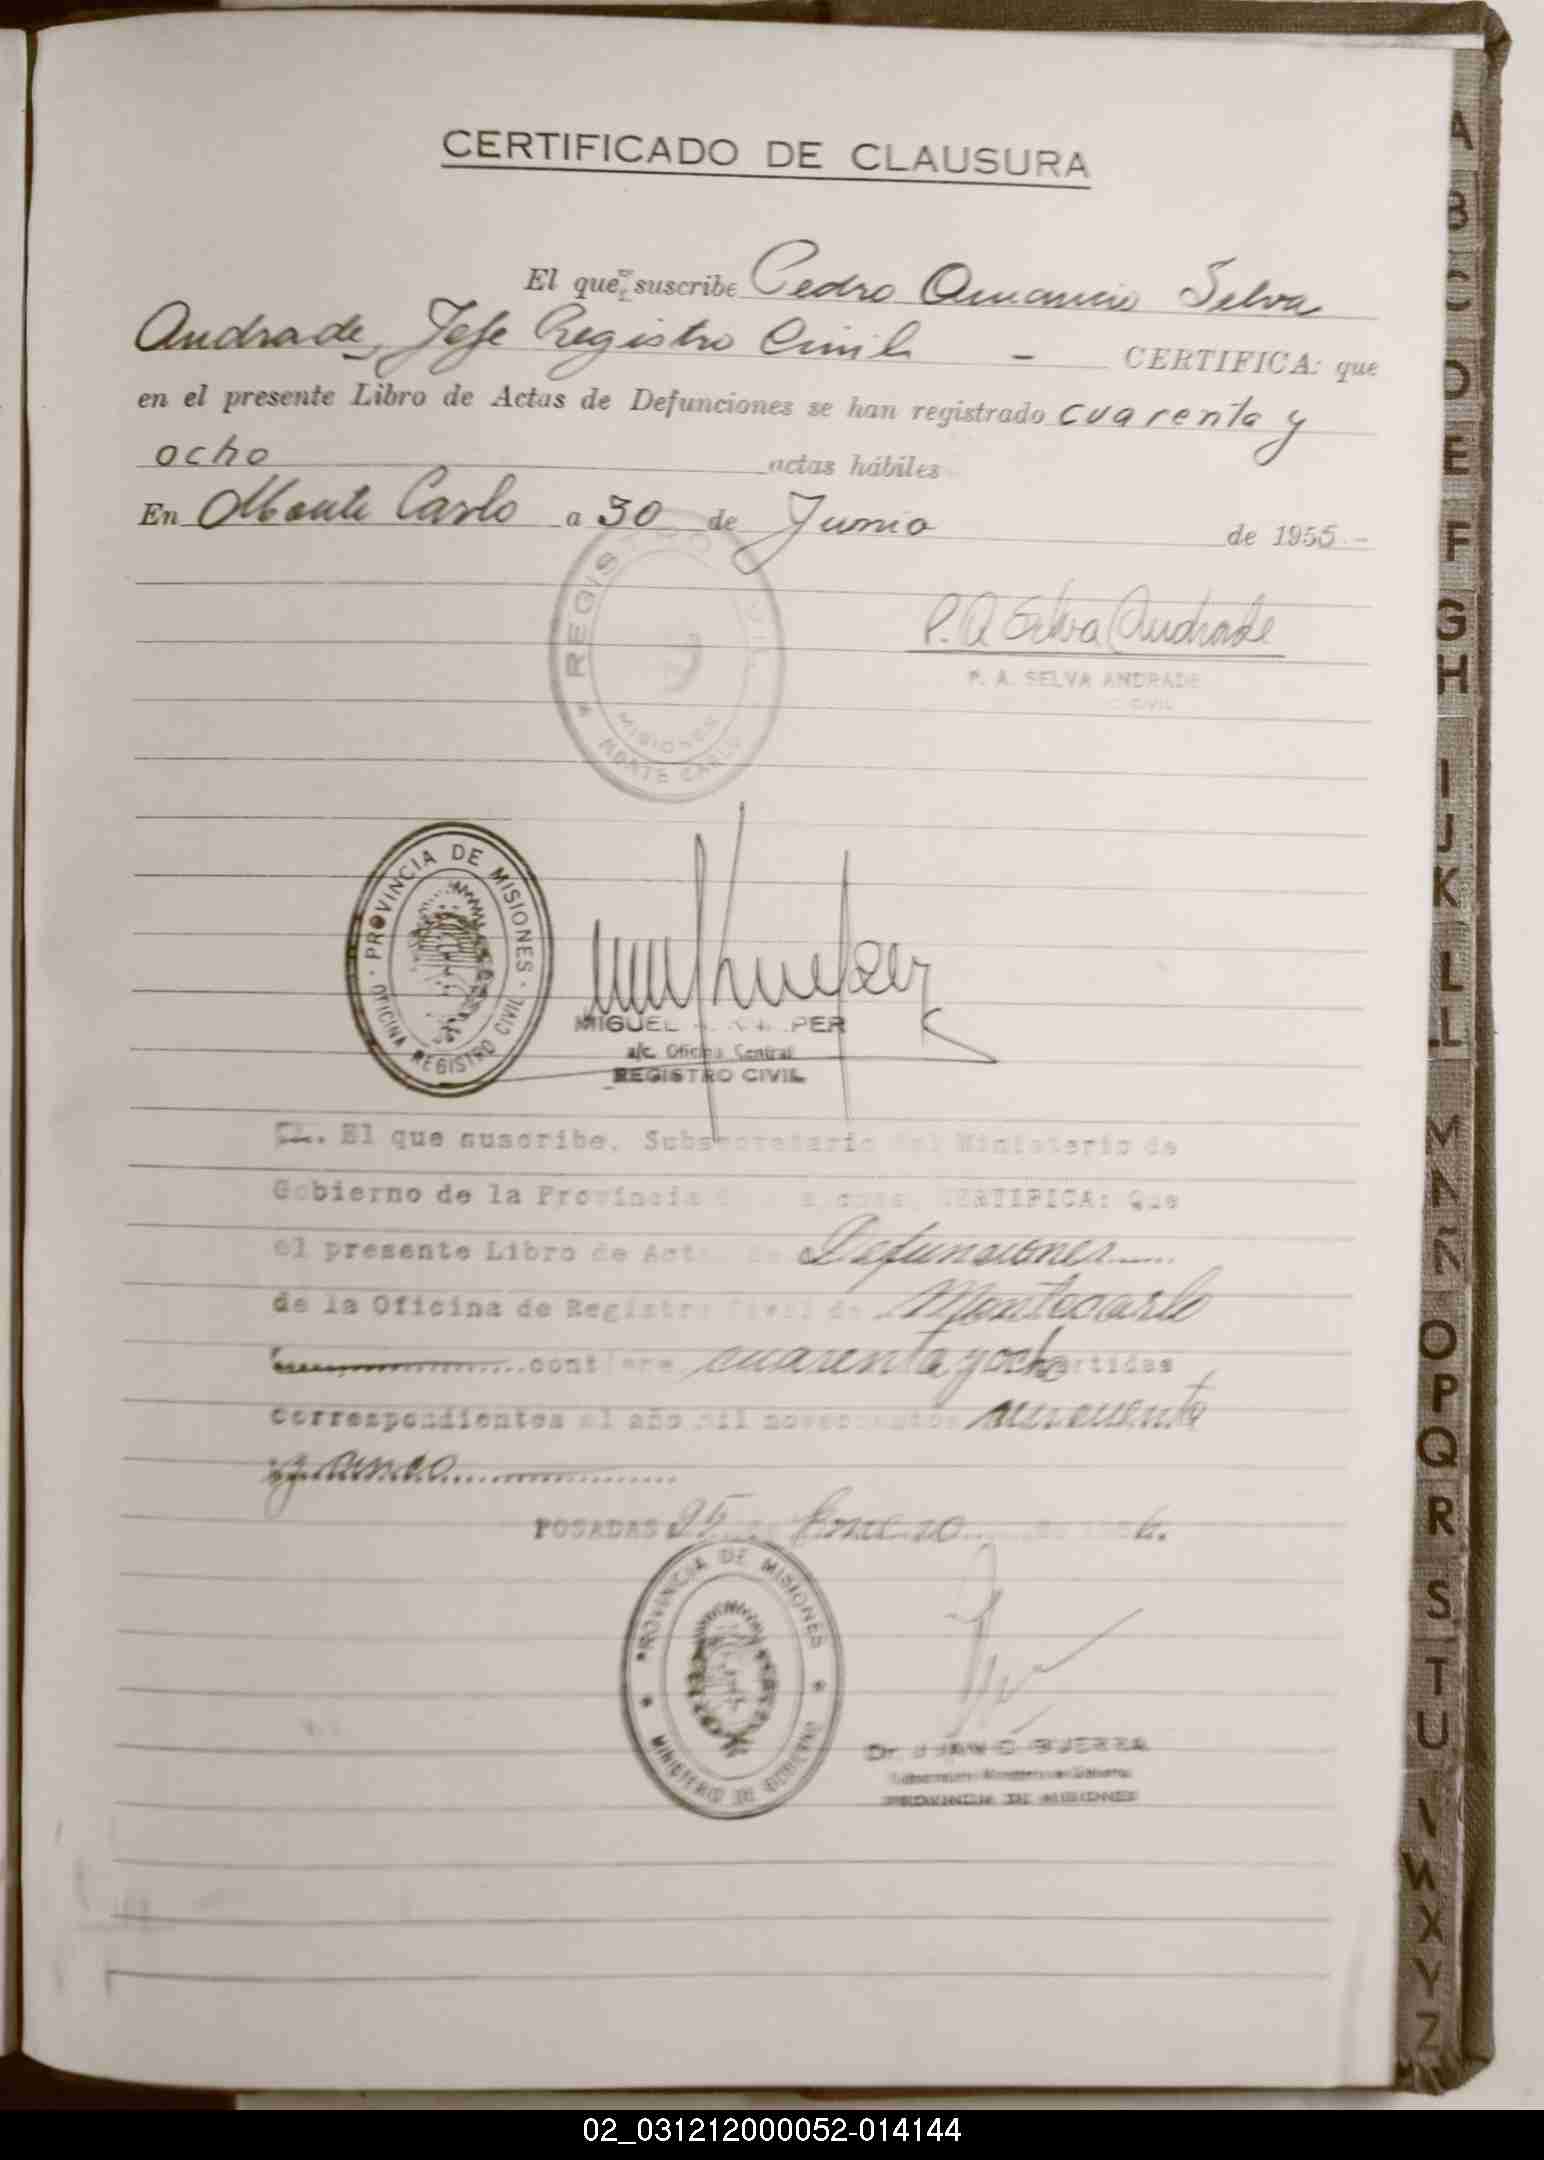 CERTIFICADO DE CLAUSURA
El que suscribe Pedro Amancio Selva
Andrade, Jefe Registro Civil - CERTIFICA: que
en el presente Libro de Actas de Defunciones se han registrado cuarenta y
ocho actas hábiles
En Monte Carlo a 30 de Junio de 1955.-
REGISTRO CIVIL
MISIONES
MONTE CARLO
P. A Selva Andrade
P. A. SELVA ANDRADE
CIVIL
PROVINCIA DE MISIONES
OFICINA REGISTRO CIVIL
MIGUEL
a/c. Oficina Central
REGISTRO CIVIL
El que suscribe, Subsecretario del Ministerio de
Gobierno de la Provincia CERTIFICA: Que
el presente Libro de Actas de Defunciones
de la Oficina de Registro Civil de Montecarlo
contiene cuarenta y ocho partidas
correspondientes al año mil novecientos cincuenta
y cinco
POSADAS 25 de Enero
PROVINCIA DE MISIONES
MINISTERIO DE GOBIERNO
Dr. JUAN C. GUERRA
PROVINCIA DE MISIONES
A
B
C
D
E
F
G
H
I
J
K
L
LL
M
N
Ñ
O
P
Q
R
S
T
U
V
W
X
Y
Z
02_031212000052-014144